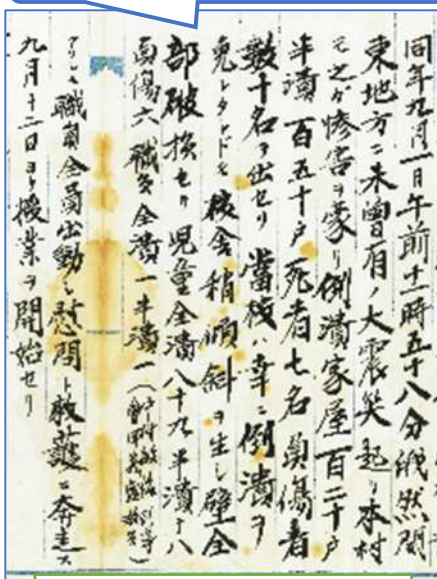 同年九月一日午前十一時五十八分俄然関
東地方ニ未曽有ノ大震災起リ本村
モ之ガ惨害ヲ蒙リ倒潰家屋百二十戸
半潰百五十戸死者七名負傷者
数十名ヲ出セリ當校ハ幸ニ倒潰ヲ
免レタレドモ校舎稍傾斜ヲ生シ壁全
部破損セリ児童全潰八十九半潰十八
負傷六職員全潰一半潰一
アリシモ職員全員出動シ慰問ト救護ニ奔走ス
九月十二日ヨリ授業ヲ開始セリ